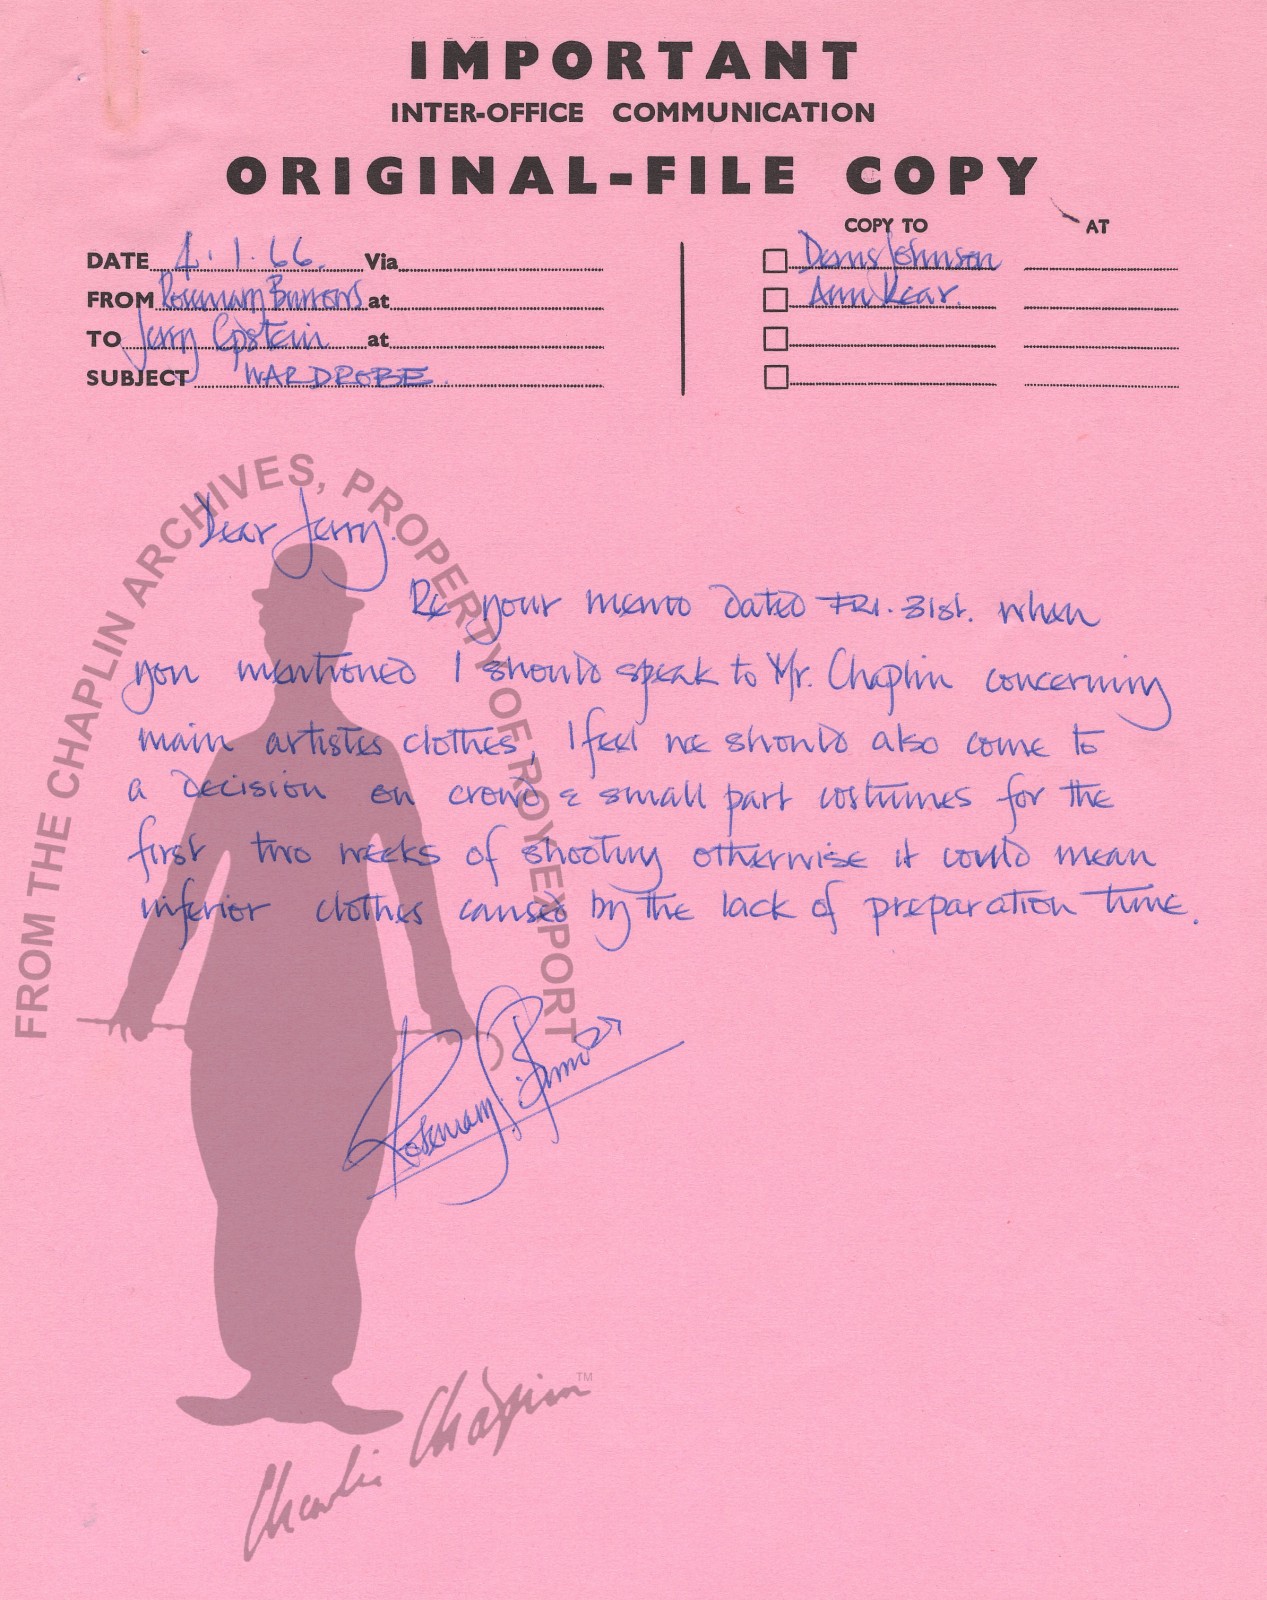 IMPORTANT
INTER-OFFICE COMMUNICATION
ORIGINAL-FILE COPY
COPY TO AT
DATE 4.1.66. Via
Denis Johnson
FROM Rosemary Burrows at
Ann Kear.
TO Jerry Epstein at
SUBJECT WARDROBE.
Dear Jerry.
Re your memo dated FRI. 31st. when
you mentioned I should speak to Mr. Chaplin concerning
main artistes clothes, I feel we should also come to
a decision on crowd & small part costumes for the
first two weeks of shooting otherwise it could mean
inferior clothes caused by the lack of preparation time.
Rosemary Burrows
FROM THE CHAPLIN ARCHIVES, PROPERTY OF ROY EXPORT
Charlie Chaplin TM